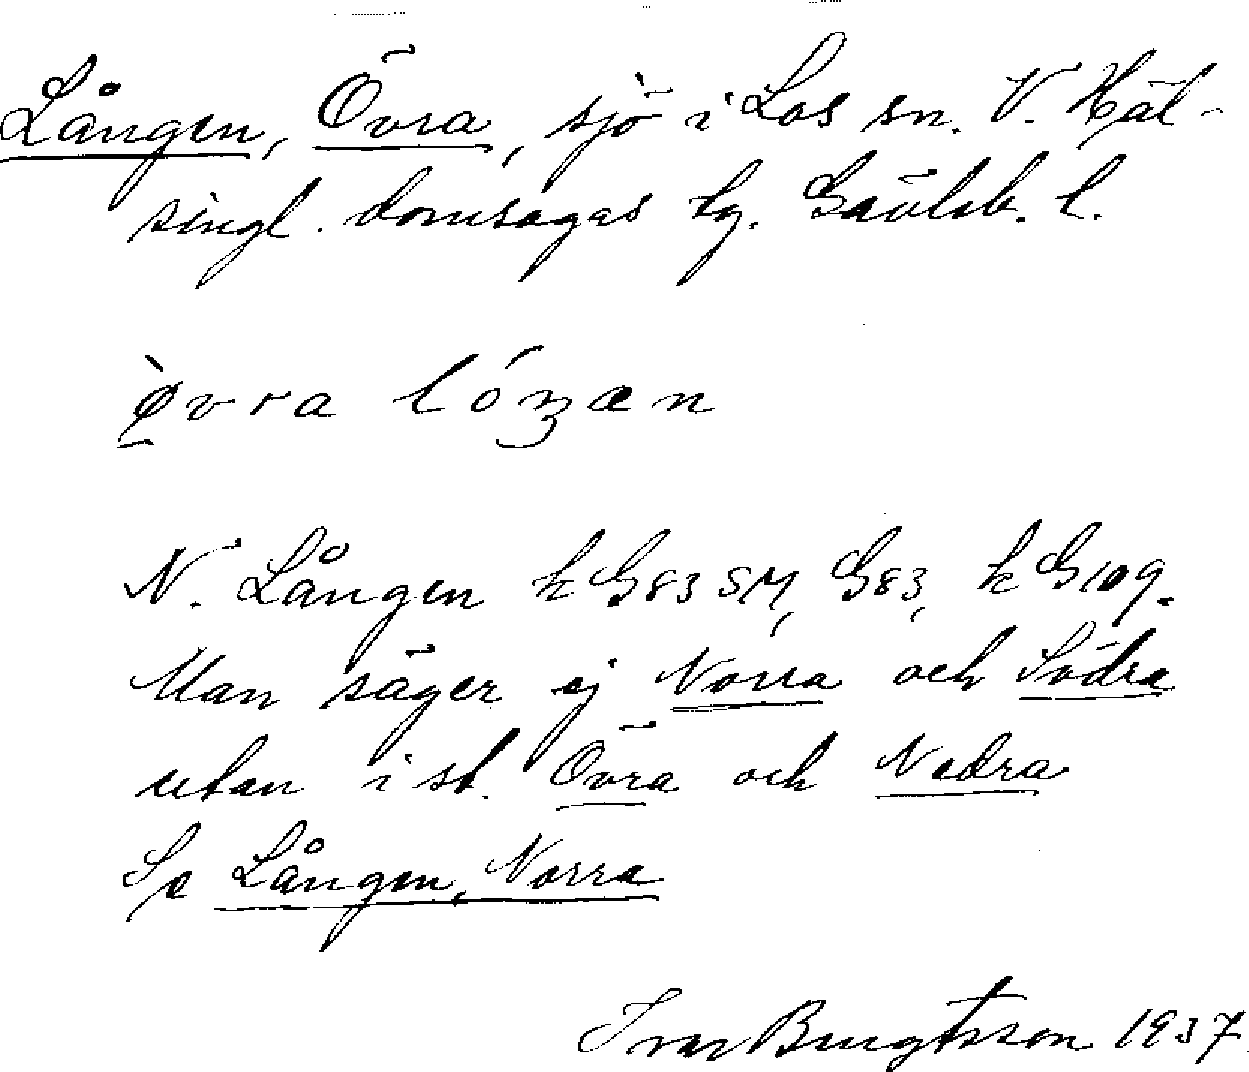 Lången, Övra, sjö i Los sn. V. Häl-
singl. domsagas tg. Gävleb. l.
ø̀vra lóŋæn
N. Lången k G83 SM, G83, k G109.
Man säger ej Norra och Södra
utan i st. Övra och Nedra
Se Lången, Norra
Ivar Bengtsson 1937